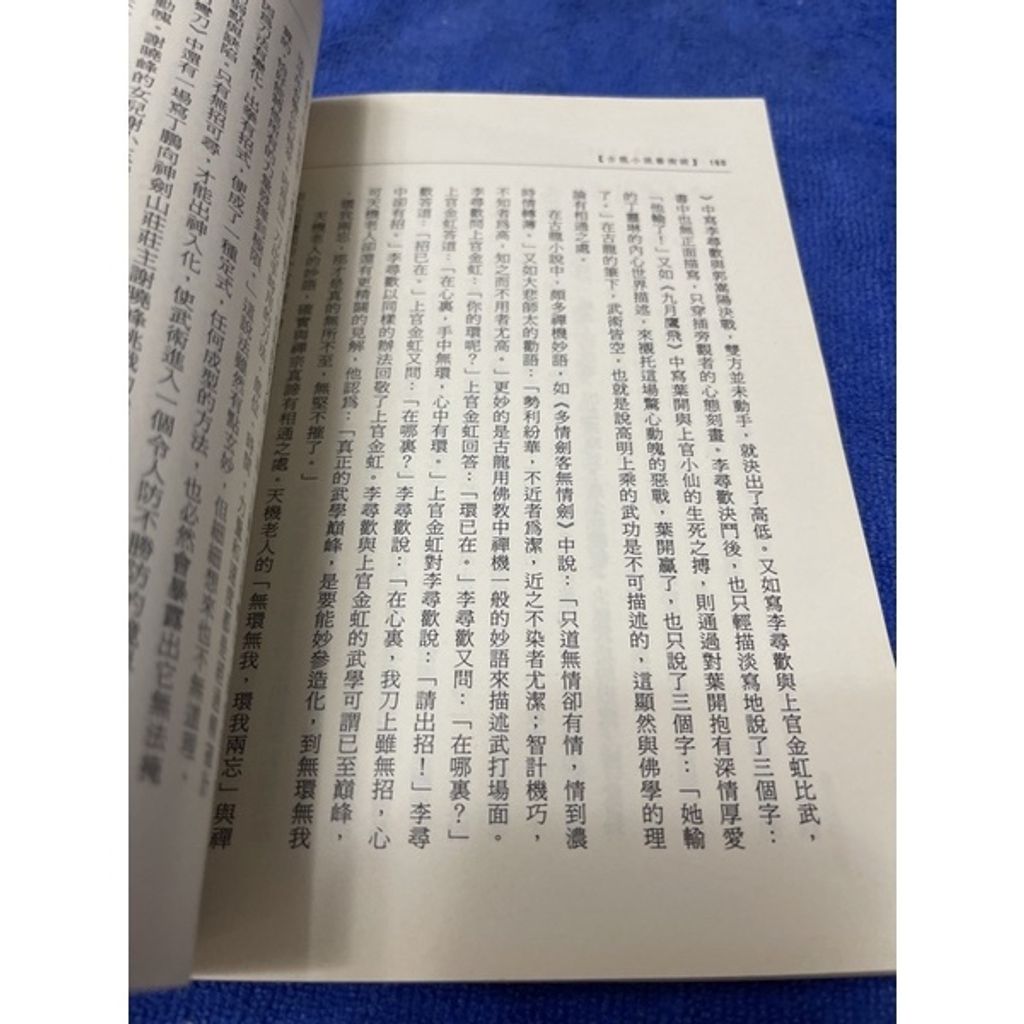 【古龍小說藝術談】 198
》中寫李尋歡與郭嵩陽決戰，雙方並未動手，就決出了高低。又如寫李尋歡與上官金虹比武，
書中也無正面描寫，只穿插旁觀者的心態刻畫。李尋歡決鬥後，也只輕描淡寫地說了三個字：
「他輸了！」又如《九月鷹飛》中寫葉開與上官小仙的生死之搏，則通過對葉開抱有深情厚愛
的丁靈琳的內心世界描述，來襯托這場驚心動魄的惡戰，葉開贏了，也只說了三個字：「她輸
了。」在古龍的筆下，武術皆空，也就是說高明上乘的武功是不可描述的，這顯然與佛學的理
論有相通之處。
在古龍小說中，頗多禪機妙語，如《多情劍客無情劍》中說：「只道無情卻有情，情到濃
時情轉薄。」又如大悲師太的勸語：「勢利紛華，不近者爲潔，近之不染者尤潔；智計機巧，
不知者爲高，知之而不用者尤高。」更妙的是古龍用佛教中禪機一般的妙語來描述武打場面。
李尋歡問上官金虹：「你的環呢？」上官金虹回答：「環已在。」李尋歡又問：「在哪裏？」
上官金虹答道：「在心裏，手中無環，心中有環。」上官金虹對李尋歡說：「請出招！」李尋
歡答道：「招已在。」上官金虹又問：「在哪裏？」李尋歡說：「在心裏，我刀上雖無招，心
中卻有招。」李尋歡以同樣的辦法回敬了上官金虹。李尋歡與上官金虹的武學可謂已至巔峰，
可天機老人卻還有更精闢的見解，他認爲：「真正的武學巔峰，是要能妙參造化，到無環無我
，環我兩忘，那才是真的無所不至，無堅不摧了。」
天機老人的妙語，確實與禪宗真諦有相通之處。天機老人的「無環無我，環我兩忘」與禪
這說法雖然有點玄妙，但細細想來也不無道理，
出拳有招式，便成了一種定式，任何成型的方法，也必然會暴露出它無法掩
弱點與缺陷，只有無招可尋，才能出神入化，使武術進入一個令人防不勝防的
刀》中還有一場寫丁鵬向神劍山莊莊主謝曉峰挑戰
謝曉峰的女兒謝